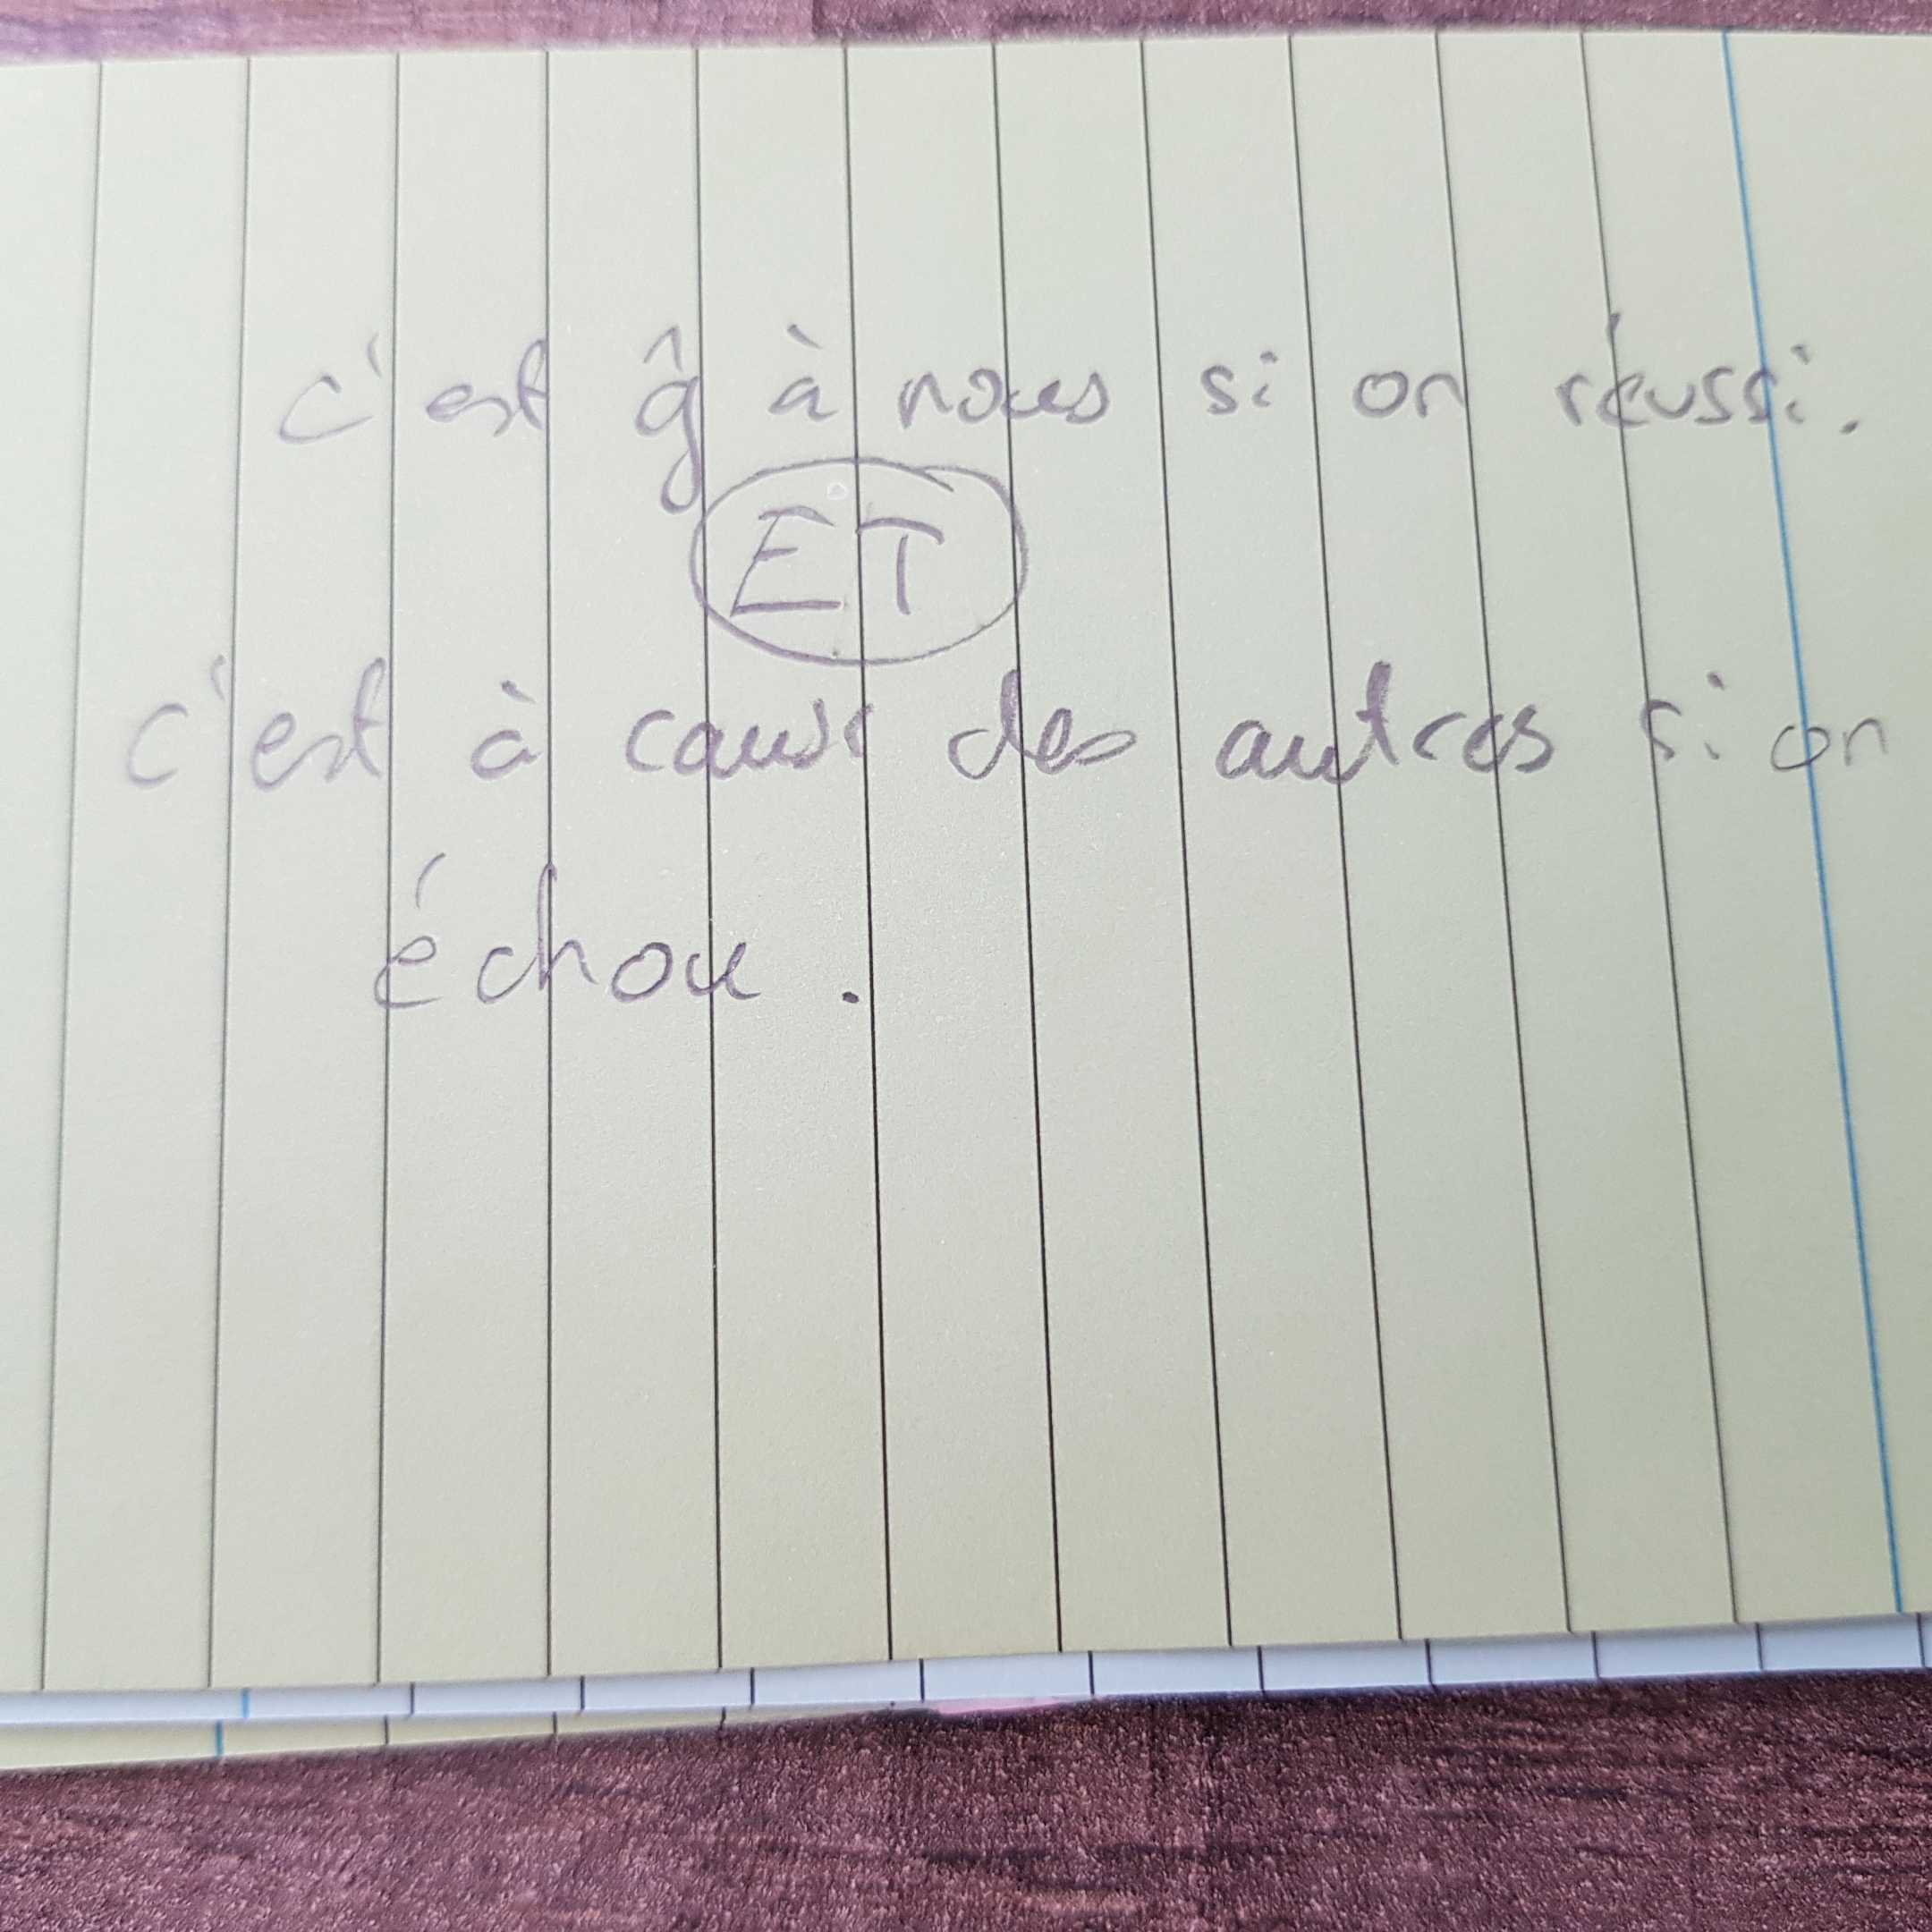 c'est ĝ à nous si on réussi.
ET
c'est à cause des autres si on
échou.